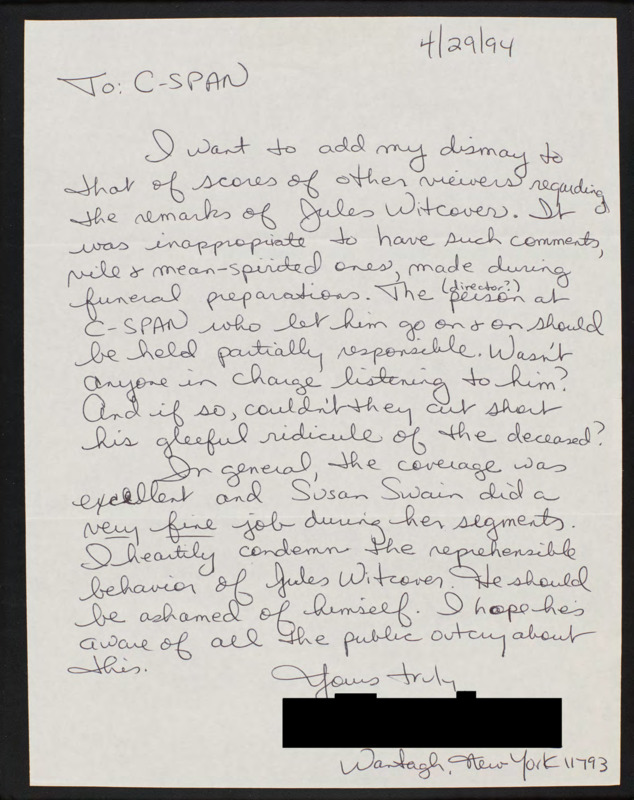 4/29/94
To: C-SPAN
I want to add my dismay to
that of scores of other viewers regarding
the remarks of Jules Witcover. It
was inappropiate to have such comments,
vile & mean-spirited ones, made during
funeral preparations. The (director?) person at
C-SPAN who let him go on & on should
be held partially responsible. Wasn't
anyone in charge listening to him?
And if so, couldn't they cut short
his gleeful ridicule of the deceased?
In general, the coverage was
excellent and Susan Swain did a
very fine job during her segments.
I heartily condemn the reprehensible
behavior of Jules Witcover. He should
be ashamed of himself. I hope he's
aware of all the public outcry about
this.
Yours truly
Wantagh, New York 11793